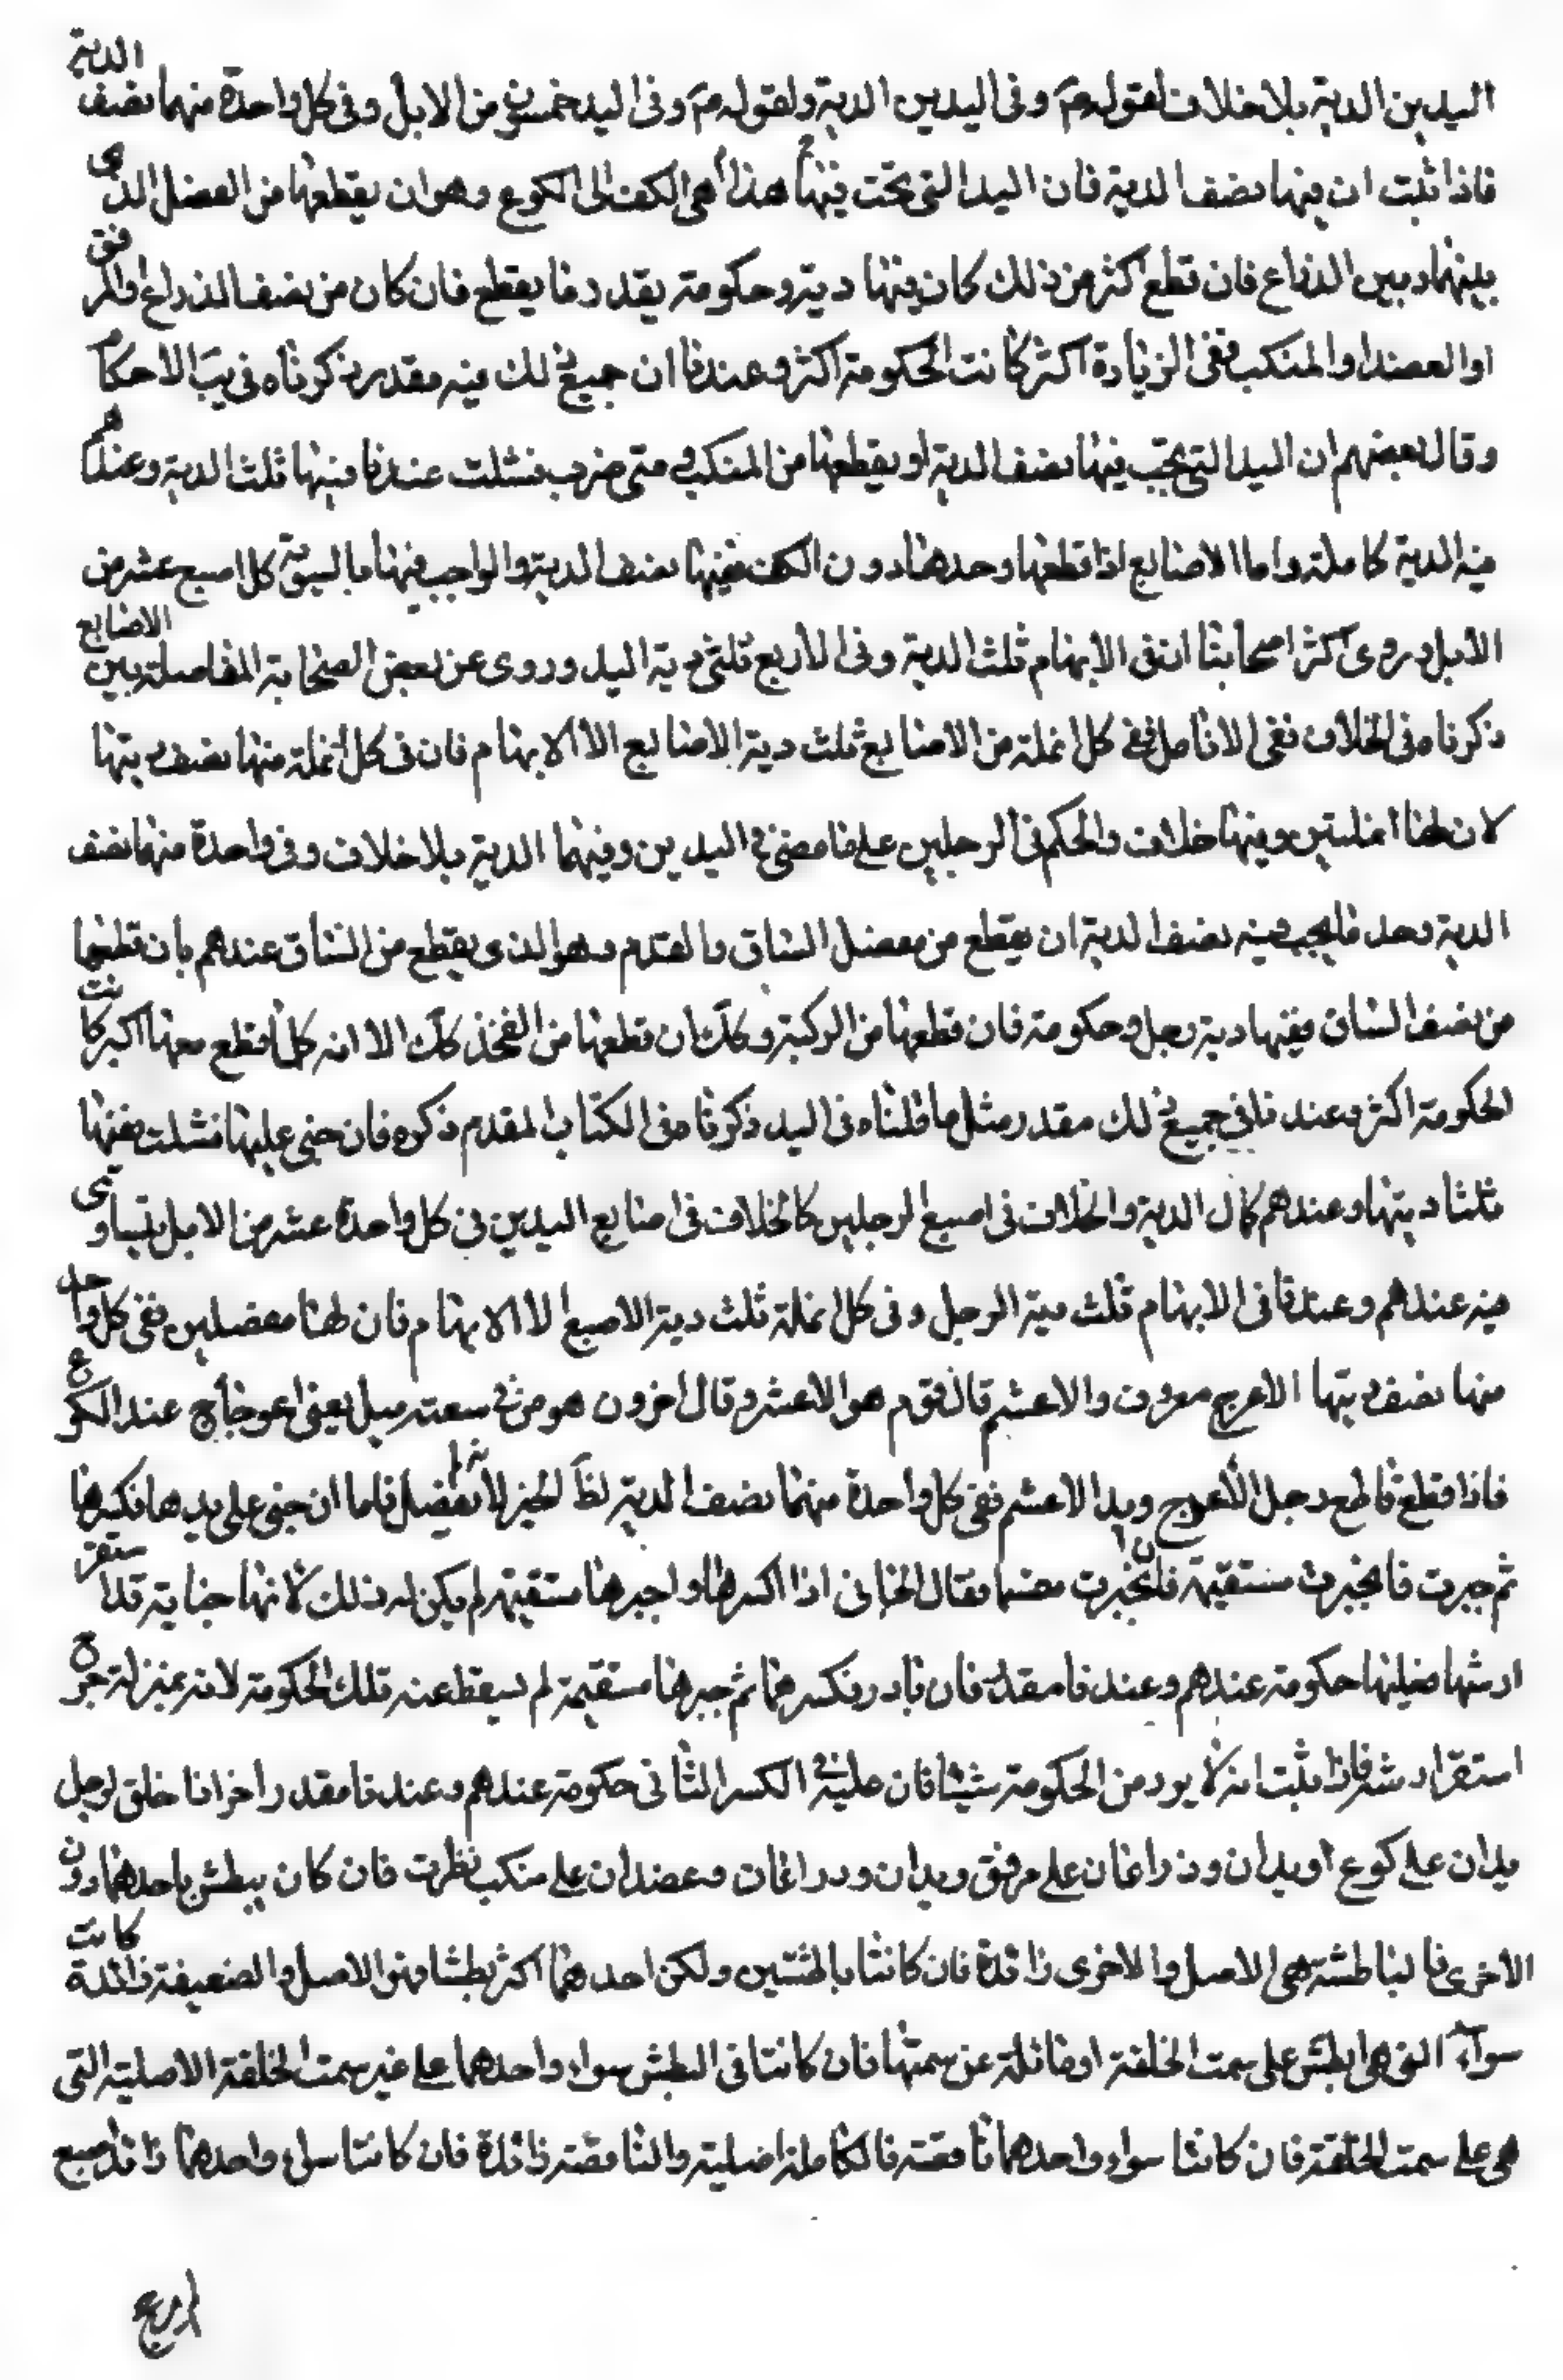 اليدين الدية بلا خلاف لقوله ع م وفى اليدين الدية ولقوله ع م وفى اليد خمسون من الابل وفى كل واحدة منهما نصف الدية
فاذا ثبت ان فيها نصف الدية فان اليد التى تحت فيها هذا هى الكف الى الكوع وهو ان يقطعها من المفصل الذى
بينها وبين الذراع فان قطع اكثر من ذلك كان فيها دية وحكومة بقدر ما يقطع فان كان من نصف الذراع والمرفق
او العضد او المنكب ففى الزيادة اكثر كانت الحكومة اكثر وعندنا ان جميع ذلك فيه مقدر ذكرناه فى يب الاحكام
وقال بعضهم ان اليد التى يجب فيها نصف الدية او يقطعها من المنكب فمتى ضرب فشلت عندنا فيها ثلث الدية وعندهم
فيه الدية كاملة واما الاصابع اذا قطعها وحدها دون الكف ففيها نصف الدية والواجب فيها بالسوية كل اصبع عشر من
الابل وروى اكثر اصحابنا ان فى الابهام ثلث الدية وفى الاربع ثلثى دية اليد وروى عن بعض الصحابة المفاصلة بين الاصابع
ذكرناه فى الخلاف ففى الانامل ففى كل انملة من الاصابع ثلث دية الاصابع الا الابهام فان فى كل انملة منها نصف ديتها
لان لها انملتين وفيها خلاف والحكم فى الرجلين على ما مضى فى اليدين وفيهما الدية بلا خلاف وفى واحدة منهما نصف
الدية وحد ما يجب فيه نصف الدية ان يقطع من مفصل الساق والقدم وهو الذى يقطع من الساق عندهم بان قطعها
من نصف الساق ففيها دية رجل وحكومة فان قطعها من الركبة وكك ان قطعها من الفخذ كك الا انه كلما قطع معها اكبر كانت
الحكومة اكثر وعندنا فى جميع ذلك مقدر مثل ما قلناه فى اليد ذكرناه فى الكتاب المقدم ذكره فان جنى عليها فشلت ففيها
ثلثا ديتها وعندهم كمال الدية والخلاف فى اصبع الرجلين كالخلاف فى اصابع اليدين فى كل واحدة عشر من الابل يتساوى
فيه عندهم وعندنا فى الابهام ثلث دية الرجل وفى كل انملة ثلث دية الاصبع الا الابهام فان لها مفصلين ففى كل واحد
منها نصف ديتها الاعرج معروف والاعشم قال قوم هو الاعشر وقال اخرون هو من فى سعته ميل يعنى اعوجاج عند الكوع
فاذا قطع قاطع رجل الاعرج ويد الاعشم ففى كل واحدة منهما نصف الدية لظ الخبر لانه لم يفصل فاما ان جنى على يدها فكسرها
ثم جبرت فانجبرت مستقيمة فان انجبرت فقال الجانى اذا اكسرها واجبرها مستقيمة لم يكن له ذلك لانها جناية قد استقر
ارشها عليها حكومة عندهم وعندنا مقدر فان بادر فكسرها ثم جبرها مستقيمة لم يسقط عنه تلك الحكومة لانه بمنزلة جرح
استقر ارشه فاذا ثبت انه لا يرد من الحكومة شيئا فان عليه فى الكسر الثانى حكومة عندهم وعندنا مقدر اخر اذا خلق لرجل
يدان على كوع او يدان وذراعان على مرفق ويدان وذراعان وعضدان على منكب نظرت فان كان يبطش باحدهما دون
الاخرى فالباطشة هى الاصل والاخرى زائدة فان كانتا باطشتين ولكن احدهما اكثر بطشا فهو الاصل والضعيفة زائدة كانت
سواء التى هى ابطش على سمت الخلقة او مائلة عن سمتها فان كانتا فى البطش سواء واحدهما على غير سمت الخلقة الاصلية التى
هى على سمت الخلقة فان كانتا سواء واحدهما ناقصة فالكاملة اصلية والناقصة زائدة فان كانتا سواء واحدهما زائد اصبع